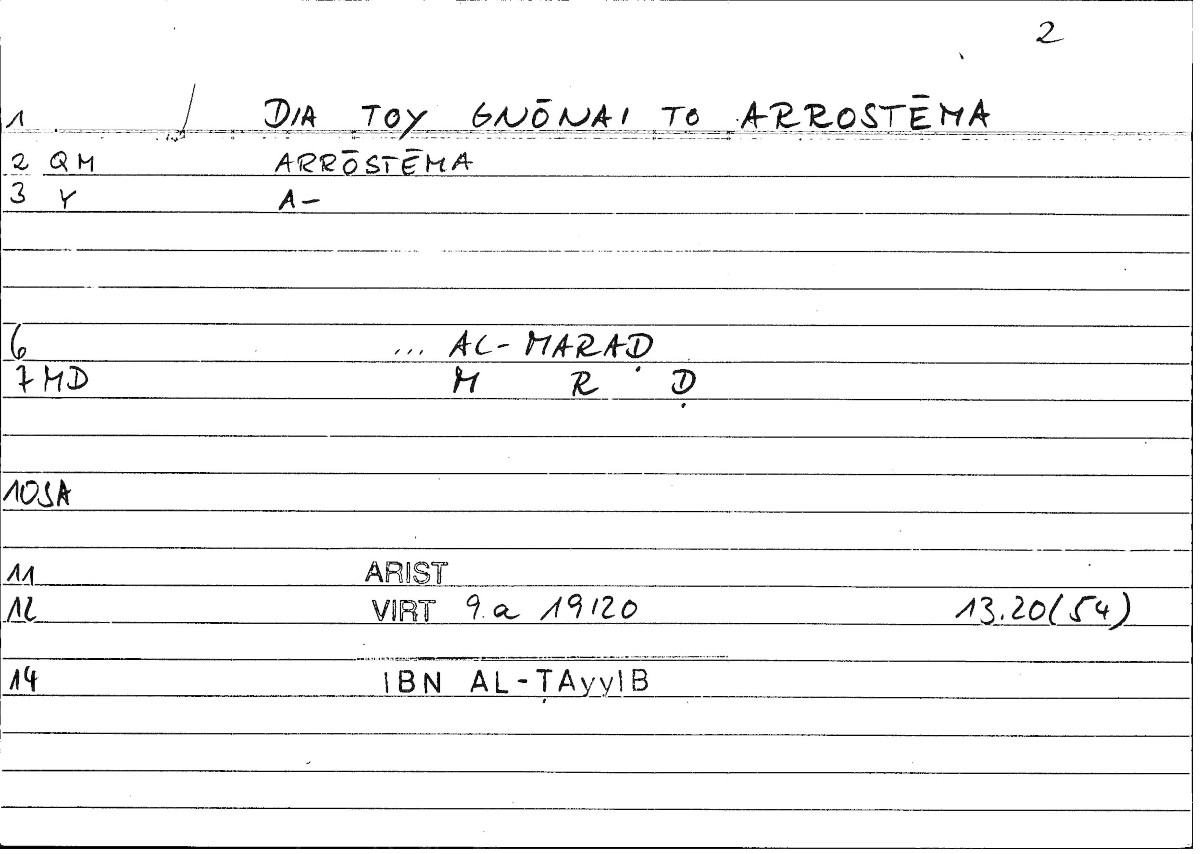 2
1 DIA TOY GNŌNAI TO ARROSTĒMA
2 QM ARRŌSTĒMA
3 Y A-
6 ... AL-MARAḌ
7 MD M R Ḍ
10 SA
11 ARIST
12 VIRT 9.a 19/20 13.20(54)
14 IBN AL-ṬAyyIB